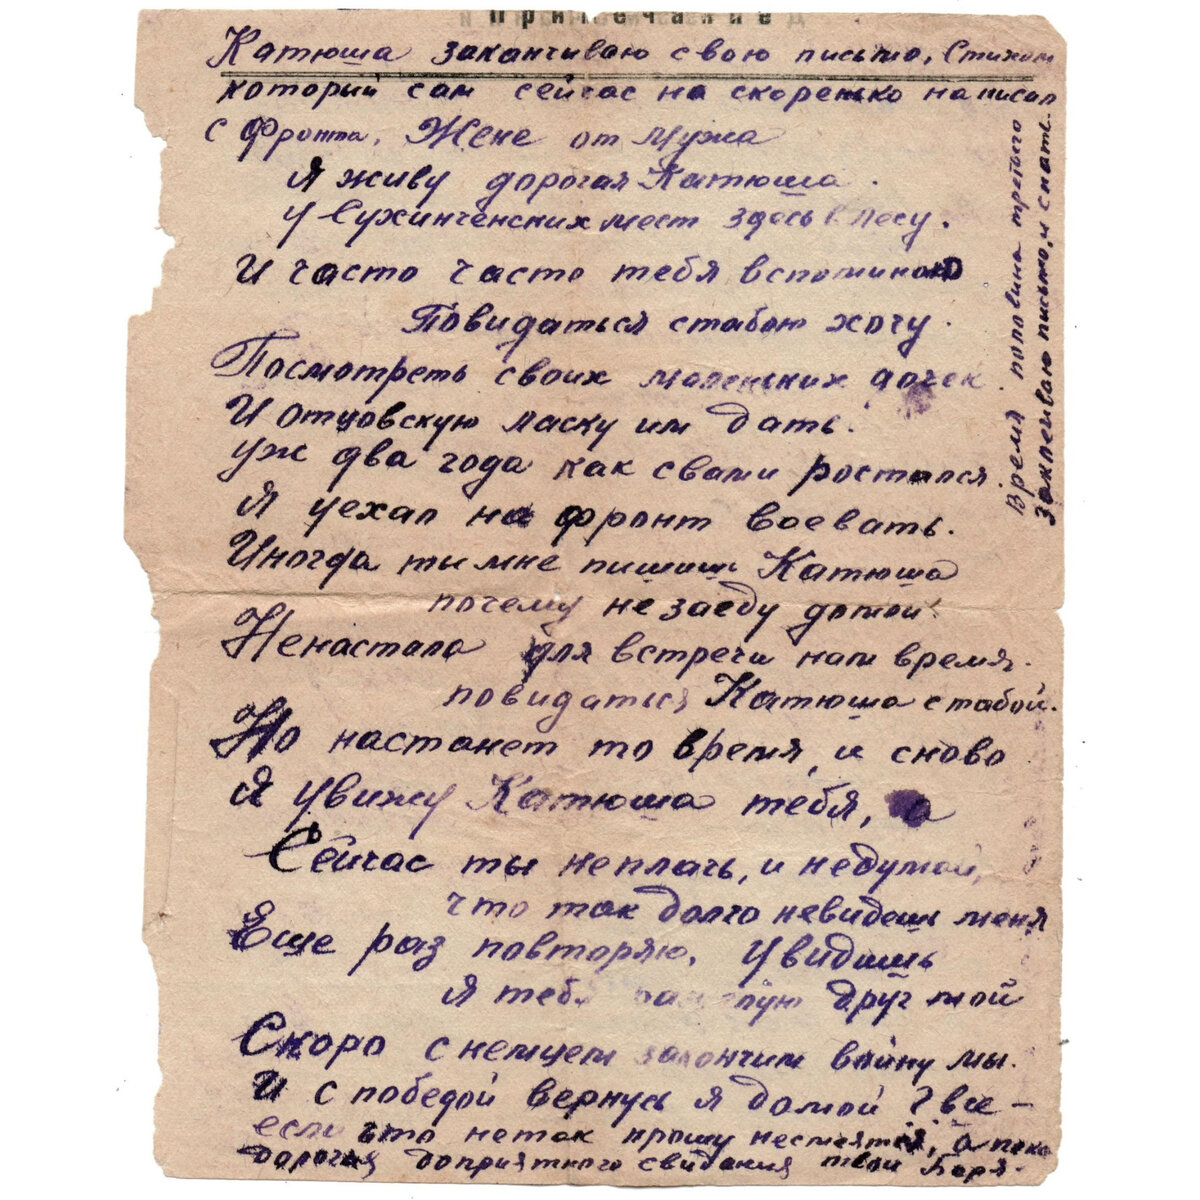 Примечание
Катюша заканчиваю свою письмо, Стихом
который сам сейчас на скоренько написал
с фронта. Жене от мужа
Я живу дорогая Катюша.
У Сухинченских мест здесь в лесу.
И часто часто тебя вспоминаю
Повидаться стабою хочу.
Посмотреть своих маленьких дочек.
И отцовскую ласку им дать.
Уж два года как свами ростался.
Я уехал на фронт воевать.
Иногда ты мне пишишь Катюша
почему незаеду домой.
Ненастало для встречи нам время.
повидаться Катюша стабой.
Но настанет то время, и сново
Я увижу Катюша тебя, а
Сейчас ты неплачь, и недумай,
что так долго невидешь меня
Еще раз повторяю. Увидишь
Я тебя друг мой
Скоро с немцем закончим войну мы.
И с победой вернусь я домой
если что нетак прошу несмеятся, а пока
дорогая доприятного свидания твой Боря.
Время половина третьего
Заклеиваю письмо, и спать.